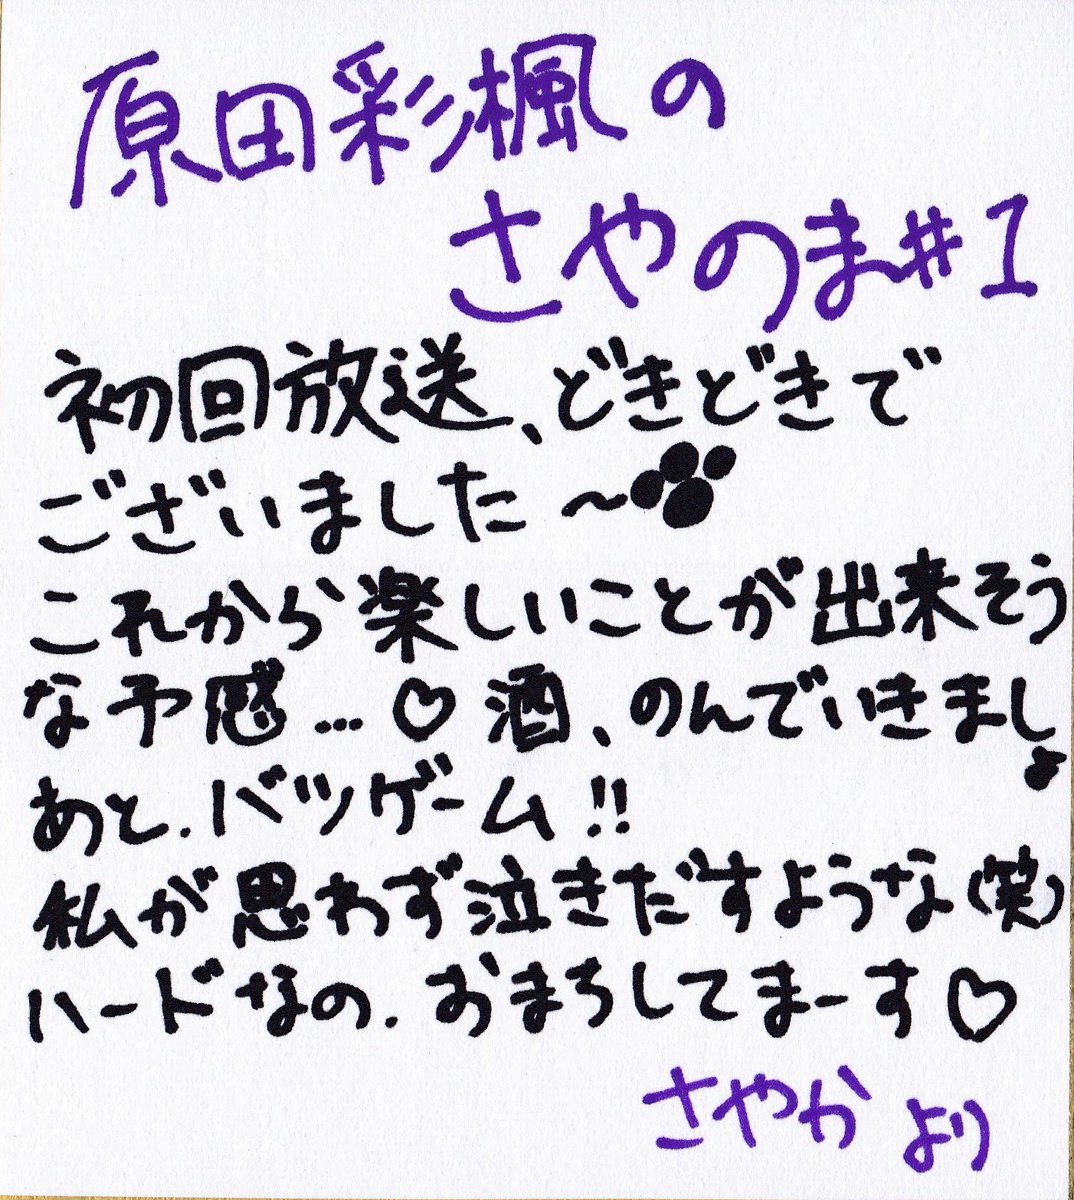 原田彩楓の
さやのま#1
初回放送、どきどきで
ございました〜
これから楽しいことが出来そう
な予感…♡ 酒、のんでいきましょ
あと、バツゲーム!!
私が思わず泣きだすような(笑)
ハードなの、おまちしてまーす♡
さやか より